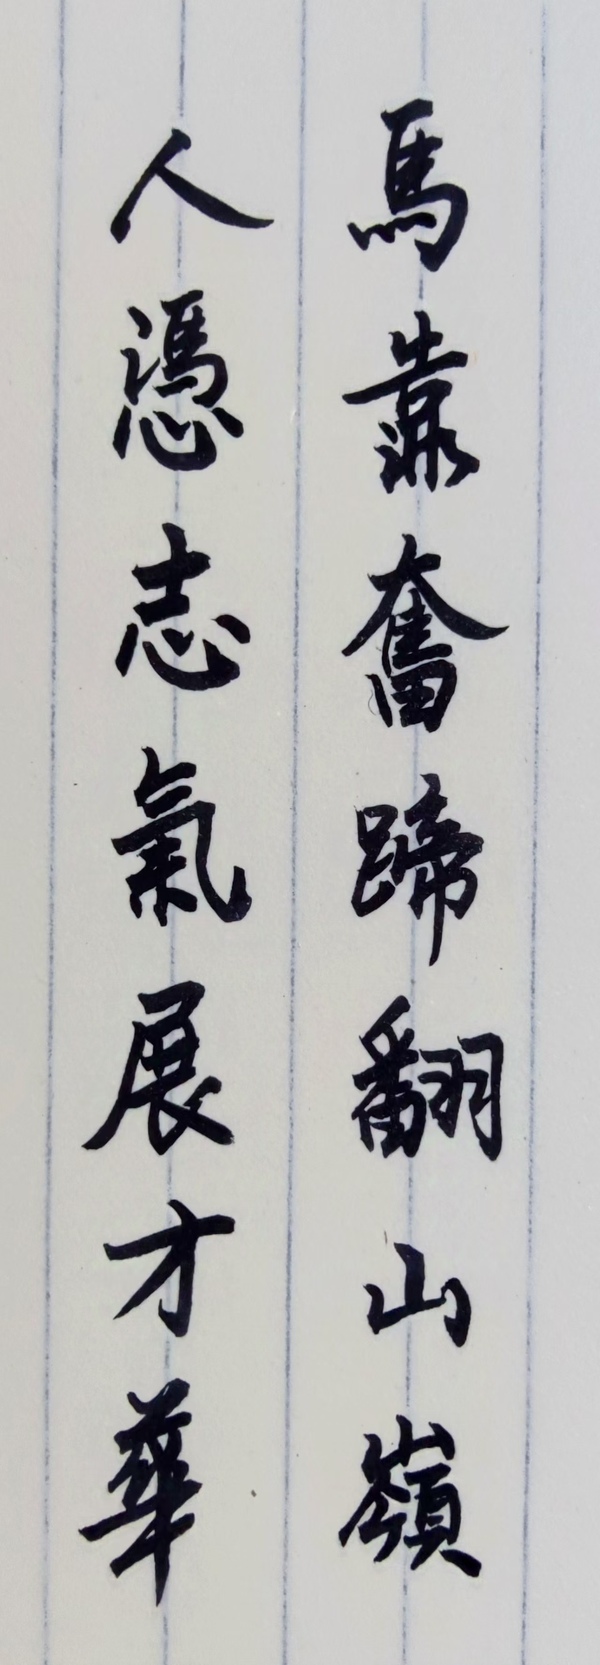 馬靠奮蹄翻山嶺
人憑志氣展才華